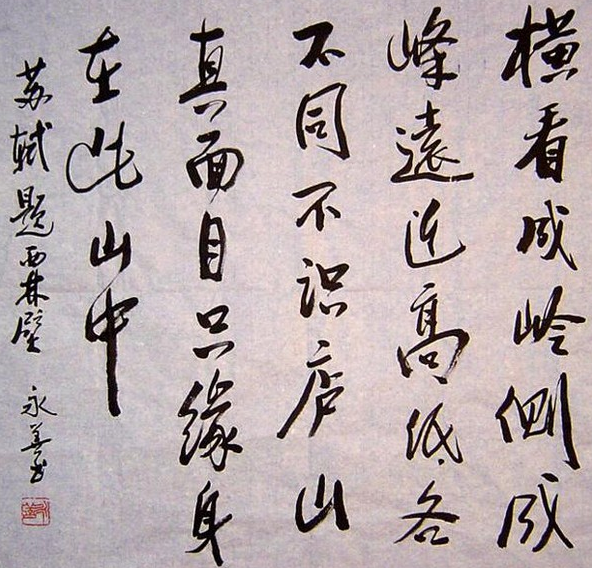 横看成岭侧成
峰遠近高低各
不同不识庐山
真面目只缘身
在此山中
苏轼题西林壁 永善书